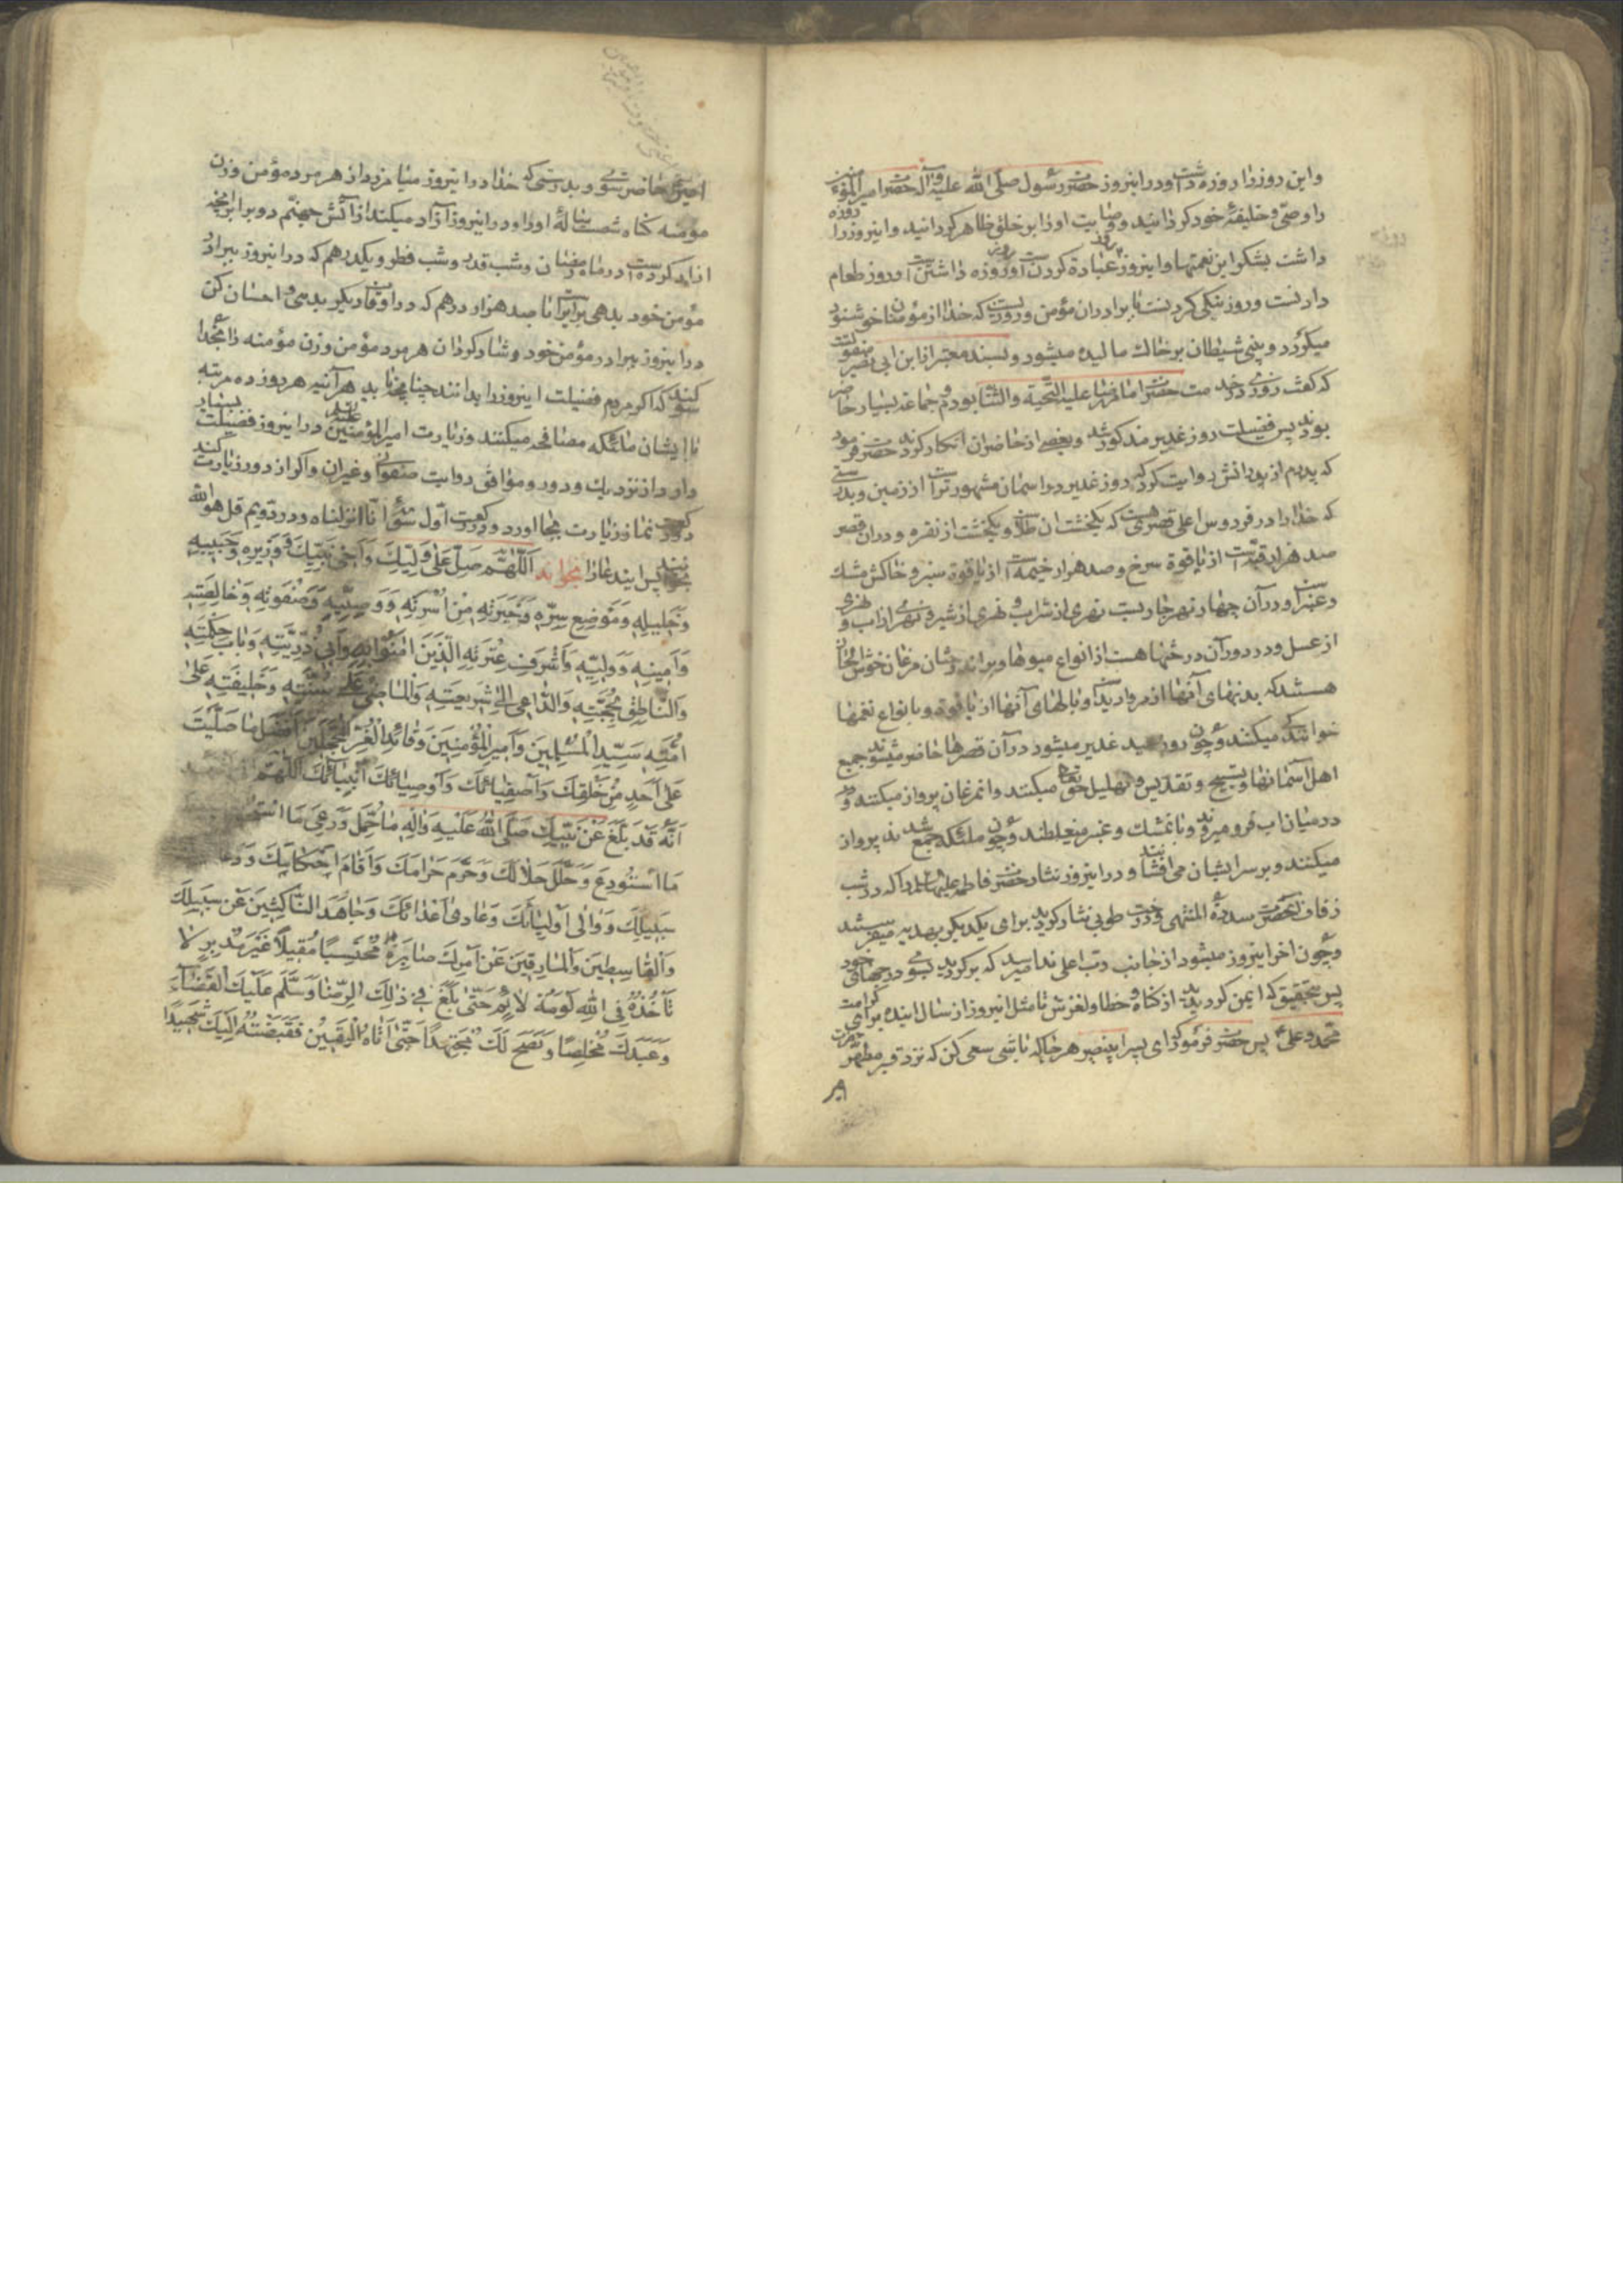 واین روز را روزه داشت و در اینروز حضرت رسول صلی الله علیه وآله حضرت امیر المؤمنین
را وصی و خلیفهٔ خود کردانید و وصایت او را بر خلق ظاهر کردانید و اینروز را روزه
داشت بشکر این نعمتها و اینروز عبادة کردنست و روز روزه داشتن است و روز طعام
دادنست و روز نیکی کردنست با برادران مؤمن و روزیست که خدا از مؤمنان خوشنود
میکردد و بینی شیطان بر خاک مالیده میشود و بسند معتبر از ابن ابی نصیر منقولست
که کفت روزی در خدمت حضرت امام رضا علیه التحیة والثنا بودم و جماعة بسیار حاضر
بودند پس فضیلت روز غدیر مذکور شد و بعضی از حاضران انکار کردند حضرت فرمود
که پدرم از پدرانش روایت کرد که روز غدیر در اسمان مشهورتر است از زمین و بدرستی
که خدا را در فردوس اعلی قصری هست که یکخشت ان طلا و یکخشت از نقره و در ان قصر
صد هزار قبه است از یاقوة سرخ و صد هزار خیمه است از یاقوة سبز و خاکش مشک
و عنبر است و در آن چهار نهر جاریست نهری از شراب و نهری از شیر و نهری از اب و نهری
از عسل و در دور آن درختها هست از انواع میوها و بر اندرختان مرغان خوش الحان
هستند که بدنهای آنها از مروارید است و بالهای آنها از یاقوة و بانواع نغمها
خوانندکی میکنند و چون روز عید غدیر میشود در آن قصرها حاضر میشوند جمیع
اهل آسمانها و تسبیح و تقدیس و تهلیل حق تعالی میکنند و انمرغان پرواز میکنند و
در میان اب فرو میروند و بانمشک و عنبر میغلطند و چون ملئکه جمع شدند پرواز
میکنند و بر سر ایشان می افشانند و در اینروز نثار حضرت فاطمه علیها السلام را که در شب
زفاف انحضرت سدرة المنتهی و درخت طوبی نثار کردند برای یکدیکر بهدیه میفرستند
و چون اخر اینروز میشود از جانب رب اعلی ندا میرسد که بر کردید بسوی درجهای خود
پس بتحقیق که ایمن کردیدید از کناه و خطا و لغزش تا مثل اینروز از سال اینده برای کرامت
محمد و علی پس حضرت فرمود که ای پسر ابینصیر هر جا که باشی سعی کن که نزد قبر مطهر حضرت
امیر
امیر حاضر شوی و بدرستی که خدا در اینروز میامرزد از هر مرد مؤمن و زن
مؤمنه کناه شصت سالهٔ او را و در اینروز آزاد میکند از آتش جهنم دو برابر انچه
ازاد کرده است در ماه رمضان و شب قدر و شب فطر و یکدرهم که در اینروز ببرادر
مؤمن خود بدهی برابر است با صد هزار درهم که در اوقات دیکر بدهی و احسان کن
در اینروز ببرادر مؤمن خود و شاد کردان هر مرد مؤمن و زن مؤمنه را بخدا
سوکند که اکر مردم فضیلت اینروز را بدانند چنانچه باید هر آینه هر روز ده مرتبه
با ایشان ملئکه مصافحه میکنند و زیارت امیر المؤمنین علیه السلام در اینروز فضیلت بسیار
دارد از نزدیک و دور و موافق روایت صفوان و غیر ان و اکر از دور زیارت کنند
دو رکعت نماز زیارت بجا اورد و در رکعت اول سوره انا انزلناه و در دویم قل هو الله
بخوانند پس ایندعا را بخواند اَللّٰهُمَّ صَلِّ عَلٰی وَلِیِّکَ وَاَخی نَبِیِّکَ وَوَزیرِهِ وَحَبیبِهِ
وَخَلیلِهِ وَمَوْضِعِ سِرِّهِ وَخِیَرَتِهِ مِنْ اُسْرَتِهِ وَوَصِیِّهِ وَصَفْوَتِهِ وَخٰالِصَتِهِ
وَاَمینِهِ وَوَلِیِّهِ وَاَشْرَفِ عِتْرَتِهِ الَّذینَ اٰمَنُوا بِهِ وَاَبی ذُرِّیَّتِهِ وَبٰابِ حِکْمَتِهِ
وَالنّٰاطِقِ بِحُجَّتِهِ وَالدّٰاعی اِلٰی شَریعَتِهِ وَالْمٰاضی عَلٰی سُنَّتِهِ وَخَلیفَتِهِ عَلٰی
اُمَّتِهِ سَیِّدِ الْمُسْلِمینَ وَاَمیرِ الْمُؤْمِنینَ وَقٰائِدِ الْغُرِّ الْمُحَجَّلینَ اَفْضَلَ مٰا صَلَّیْتَ
عَلٰی اَحَدٍ مِنْ خَلْقِکَ وَاَصْفِیٰائِکَ وَاَوْصِیٰائِکَ اَنْبِیٰائِکَ اَللّٰهُمَّ
اَنَّهُ قَدْ بَلَّغَ عَنْ نَبِیِّکَ صَلَّی اللهُ عَلَیْهِ وَاٰلِهِ مٰا حُمِّلَ وَرَعیٰ مَا
مَا اسْتُودِعَ وَحَلَّلَ حَلٰالَکَ وَحَرَّمَ حَرٰامَکَ وَاَقٰامَ اَحْکٰامَکَ
سَبیلِکَ وَوٰالٰی اَوْلِیٰائَکَ وَعٰادٰی اَعْدٰائَکَ وَجٰاهَدَ النّٰاکِثینَ عَنْ سَبیلِکَ
وَالْقٰاسِطینَ وَالْمٰارِقینَ عَنْ اَمْرِکَ صٰابِرًا مُحْتَسِبًا مُقْبِلًا غَیْرَ مُدْبِرٍ لٰا
تَأْخُذُهُ فِی اللهِ لَوْمَةُ لٰائِمٍ حَتّٰی بَلَغَ فی ذٰلِکَ الرِّضٰا وَسَلَّمَ عَلَیْکَ الْقَضٰآءَ
وَعَبَدَکَ مُخْلِصًا وَنَصَحَ لَکَ مُجْتَهِدًا حَتّٰی اَتٰاهُ الْیَقینُ فَقَبَضْتَهُ اِلَیْکَ شَهیدًا